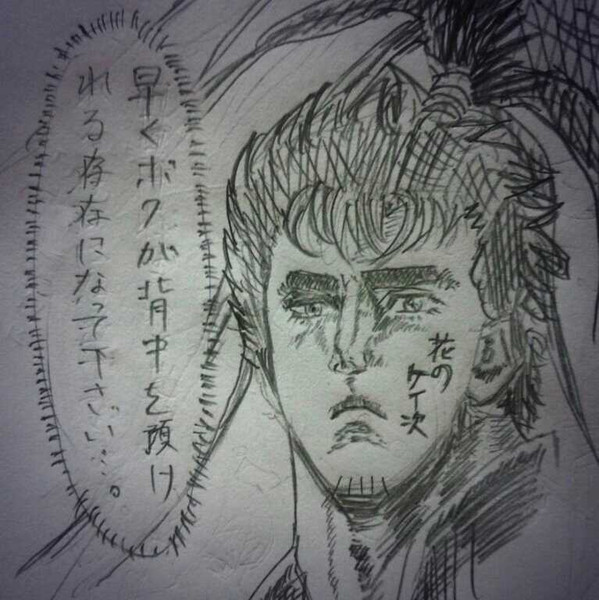 早くボクが背中を預け
れる存在になって下さい…。
花の
ケイ次